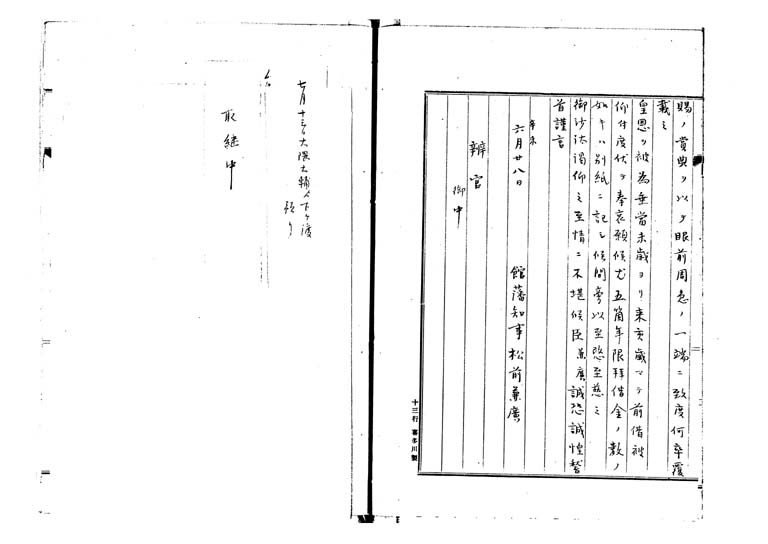 賜ノ賞典ヲ以テ眼前周急ノ一端ニ致度何卒覆
載之
皇恩ヲ被為垂当未歳ヨリ来亥歳マテ前借被
仰付度伏テ奉哀願候尤五箇年限拝借金ノ数ノ
如キハ別紙ニ記シ候間旁以至恐至慈之
御沙汰渇仰之至情ニ不堪候臣兼廣誠恐誠惶謹
首謹言
辛未
六月廿八日
館藩知事松前兼廣
辨官
御中
十三行 喜多川製
七月十三日大隈大輔
取継中